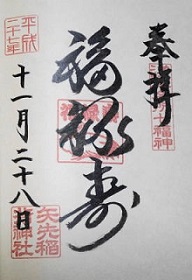 奉拝
七福神
福禄寿
平成
二十七年
十一月二十八日
矢先稲
荷神社